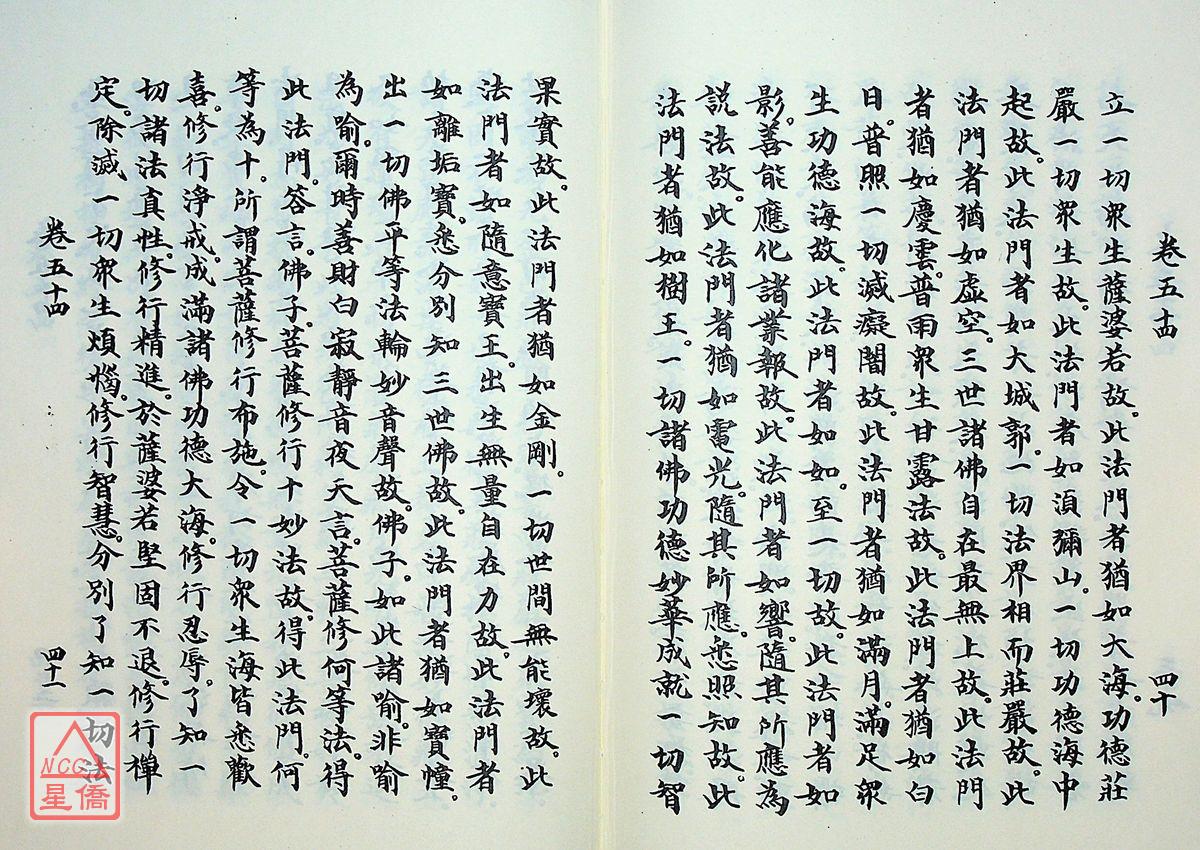 卷五十四
四十
立一切眾生薩婆若故。此法門者猶如大海。功德莊
嚴一切眾生故。此法門者如須彌山。一切功德海中
起故。此法門者如大城郭。一切法界相而莊嚴故。此
法門者猶如虛空。三世諸佛自在最無上故。此法門
者猶如慶雲。普雨眾生甘露法故。此法門者猶如白
日。普照一切滅癡闇故。此法門者猶如滿月。滿足眾
生功德海故。此法門者如如。至一切故。此法門者如
影。善能應化諸業報故。此法門者如響。隨其所應為
說法故。此法門者猶如電光。隨其所應。悉照知故。此
法門者猶如樹王。一切諸佛功德妙華成就一切智
果實故。此法門者猶如金剛。一切世間無能壞故。此
法門者如隨意寶王。出生無量自在力故。此法門者
如離垢寶。悉分別知三世佛故。此法門者猶如寶幢。
出一切佛平等法輪妙音聲故。佛子。如此諸喻。非喻
為喻。爾時善財白寂靜音夜天言。菩薩修何等法。得
此法門。答言。佛子。菩薩修行十妙法故。得此法門。何
等為十。所謂菩薩修行布施。令一切眾生海皆悉歡
喜。修行淨戒。成滿諸佛功德大海。修行忍辱。了知一
切諸法真性。修行精進。於薩婆若堅固不退。修行禪
定。除滅一切眾生煩惱。修行智慧。分別了知一切法
卷五十四
四十一
NCC
星僑